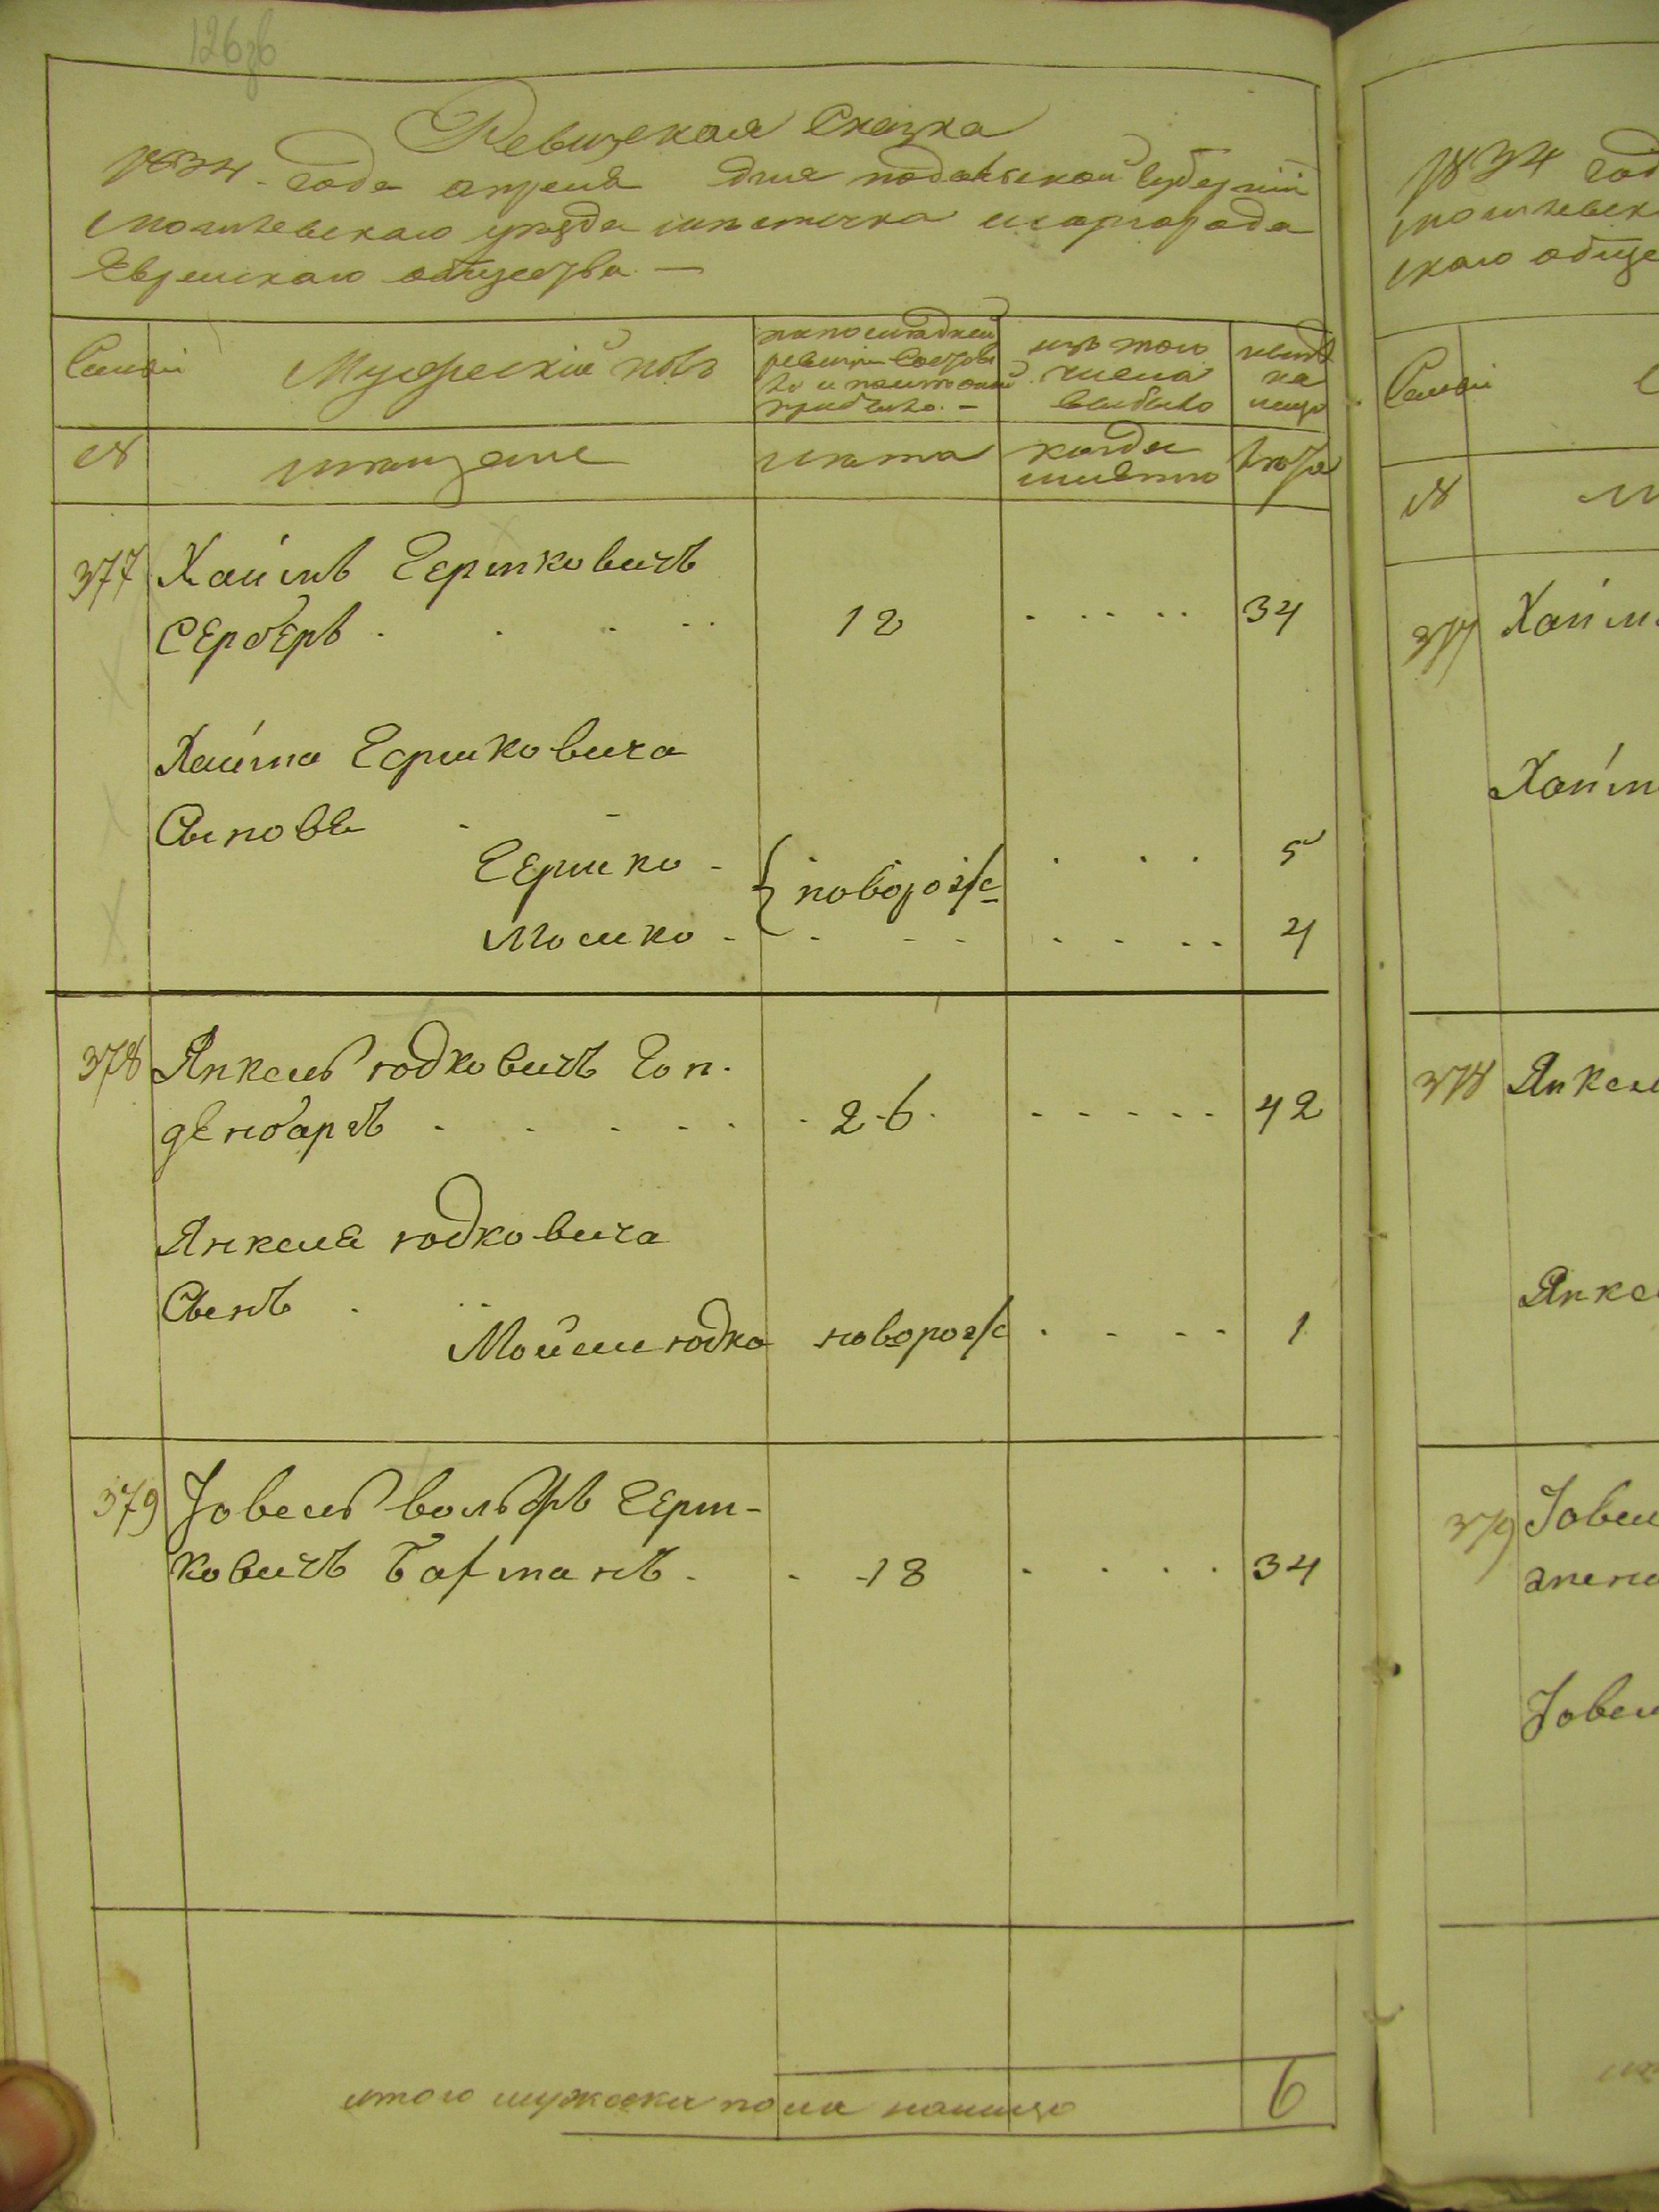 126зв
Ревизская Сказка
1834. года апреля дня подольской губернии
могилевскаго уезда местечка шаргорода
Еврейскаго общества. —
Семьи
Мужеский полъ
по последней
ревизии состоя
ло и после оной
прибыло. —
изъ того
числа
выбыло
ныне
на
лицо
№
мещане
лета
когда
именно
лета
377
Хаимъ Гершковичъ
СЕрбЕръ . . . . .
12
. . . . .
34
Хаима Гершковича
Сыновья . -
ГЕршко -
{ новорож/с
. . .
5
Мошко - - - -
. . . .
4
378
Янкель юдковичъ Гол.
дЕнбаргъ . . . . .
26
. . . . .
42
Янкеля юдковича
Сынъ . . .
Мойше юдко
новорож/с
. . . .
1
379
Іовель вольфъ ГЕрш-
ковичъ Гафманъ .
18
. . . .
34
итого мужеска пола налицо
6
1834 год
могилевск
скаго обще
Семьи
№
377
Хаим
Хаим
378
Янкел
Янке
379
Іовел
жена
Іовел